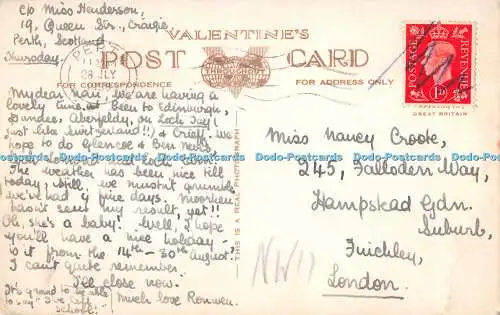 c/o Miss Henderson,
19, Queen Str., Craigie
Perth, Scotland
Thursday.
PERTH
28 JLY
VALENTINE'S
POST CARD
FOR CORRESPONDENCE
FOR ADDRESS ONLY
POSTAGE REVENUE
1D
GREAT BRITAIN
THIS IS A REAL PHOTOGRAPH
My dear Nan, We are having a
lovely time. Been to Edinburgh,
Dundee, Aberfeldy, on Loch Tay (
just like Switzerland!!) & Crieff. We
hope to do Glencoe & Ben Nevis
The weather has been nice till
today, still we mustn't grumble
we've had 4 fine days.
hasn't sent my result, yet!!
Oh, she's a baby! Well, I hope
you'll have a nice holiday
is it from the 14th - 30th August?
I can't quite remember.
I'll close now.
Much love Ronwen.
It's grand to be able
to say "I've left
school!"
Miss Nancy Croote,
245, Falloden Way,
Hampstead Gdn.
Suburb,
Finchley,
London.
NW11
Dado-Postcards.com Dado-Postcards.com Dado-Postcards.com Dado-Postcards.com